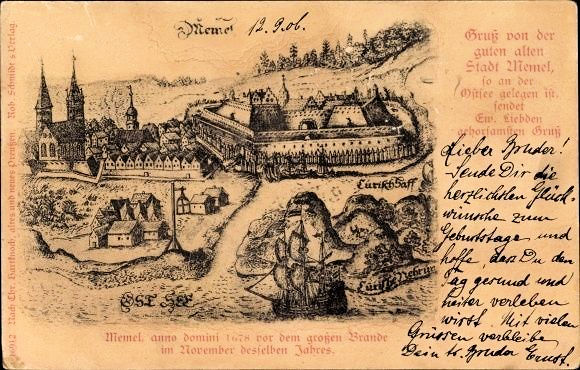 Memel 12.9.06.
Gruß von der
guten alten
Stadt Memel,
so an der
Ostsee gelegen ist,
sendet
Ew. Liebden
gehorsamsten Gruß
Lieber Bruder!
Sende Dir die
herzlichsten Glück-
wünsche zum
Geburtstage und
hoffe, daß Du den
Tag gesund und
heiter verleben
wirst. Mit vielen
Grüssen verbleibe
Dein tr. Bruder Ernst.
Curisch Haff
Curisch Nehrun
OST SEE
Memel, anno domini 1678 vor dem großen Brande
im November desselben Jahres.
Nach Ch. Hartknoch, altes und neues Preußen. Rob. Schmidt's Verlag.